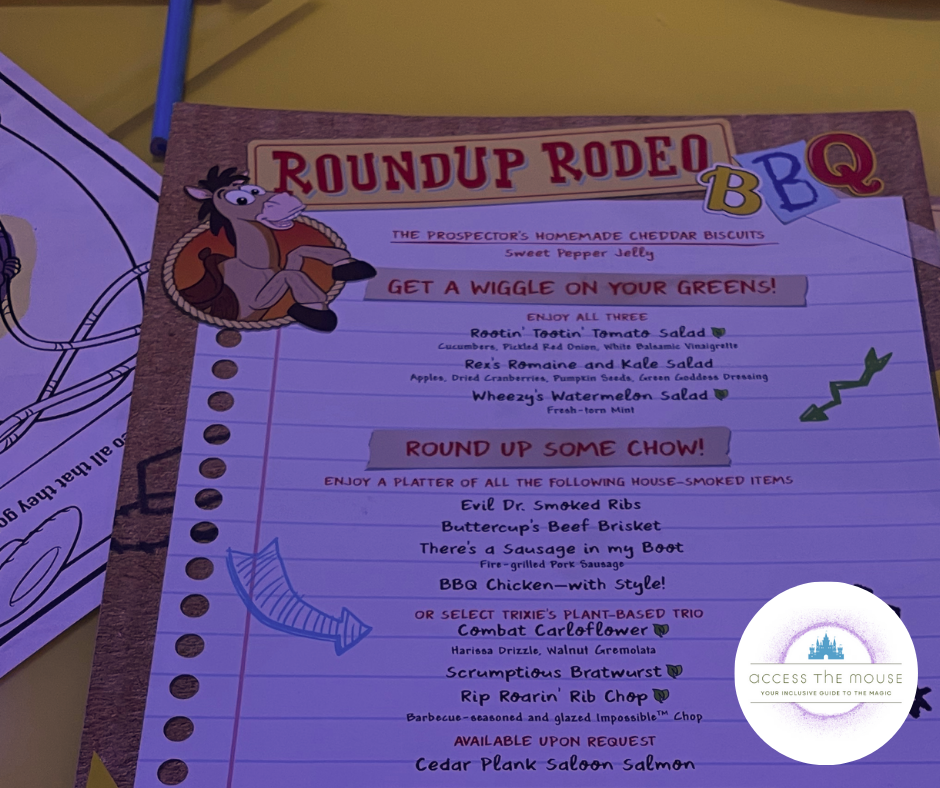 ROUNDUP RODEO
BBQ
THE PROSPECTOR'S HOMEMADE CHEDDAR BISCUITS
Sweet Pepper Jelly
GET A WIGGLE ON YOUR GREENS!
ENJOY ALL THREE
Rootin' Tootin' Tomato Salad
Cucumbers, Pickled Red Onion, White Balsamic Vinaigrette
Rex's Romaine and Kale Salad
Apples, Dried Cranberries, Pumpkin Seeds, Green Goddess Dressing
Wheezy's Watermelon Salad
Fresh-torn Mint
ROUND UP SOME CHOW!
ENJOY A PLATTER OF ALL THE FOLLOWING HOUSE-SMOKED ITEMS
Evil Dr. Smoked Ribs
Buttercup's Beef Brisket
There's a Sausage in my Boot
Fire-grilled Pork Sausage
BBQ Chicken—with Style!
OR SELECT TRIXIE'S PLANT-BASED TRIO
Combat Carloflower
Harissa Drizzle, Walnut Gremolata
Scrumptious Bratwurst
Rip Roarin' Rib Chop
Barbecue-seasoned and glazed Impossible™ Chop
AVAILABLE UPON REQUEST
Cedar Plank Saloon Salmon
all that they go
ACCESS THE MOUSE
YOUR INCLUSIVE GUIDE TO THE MAGIC